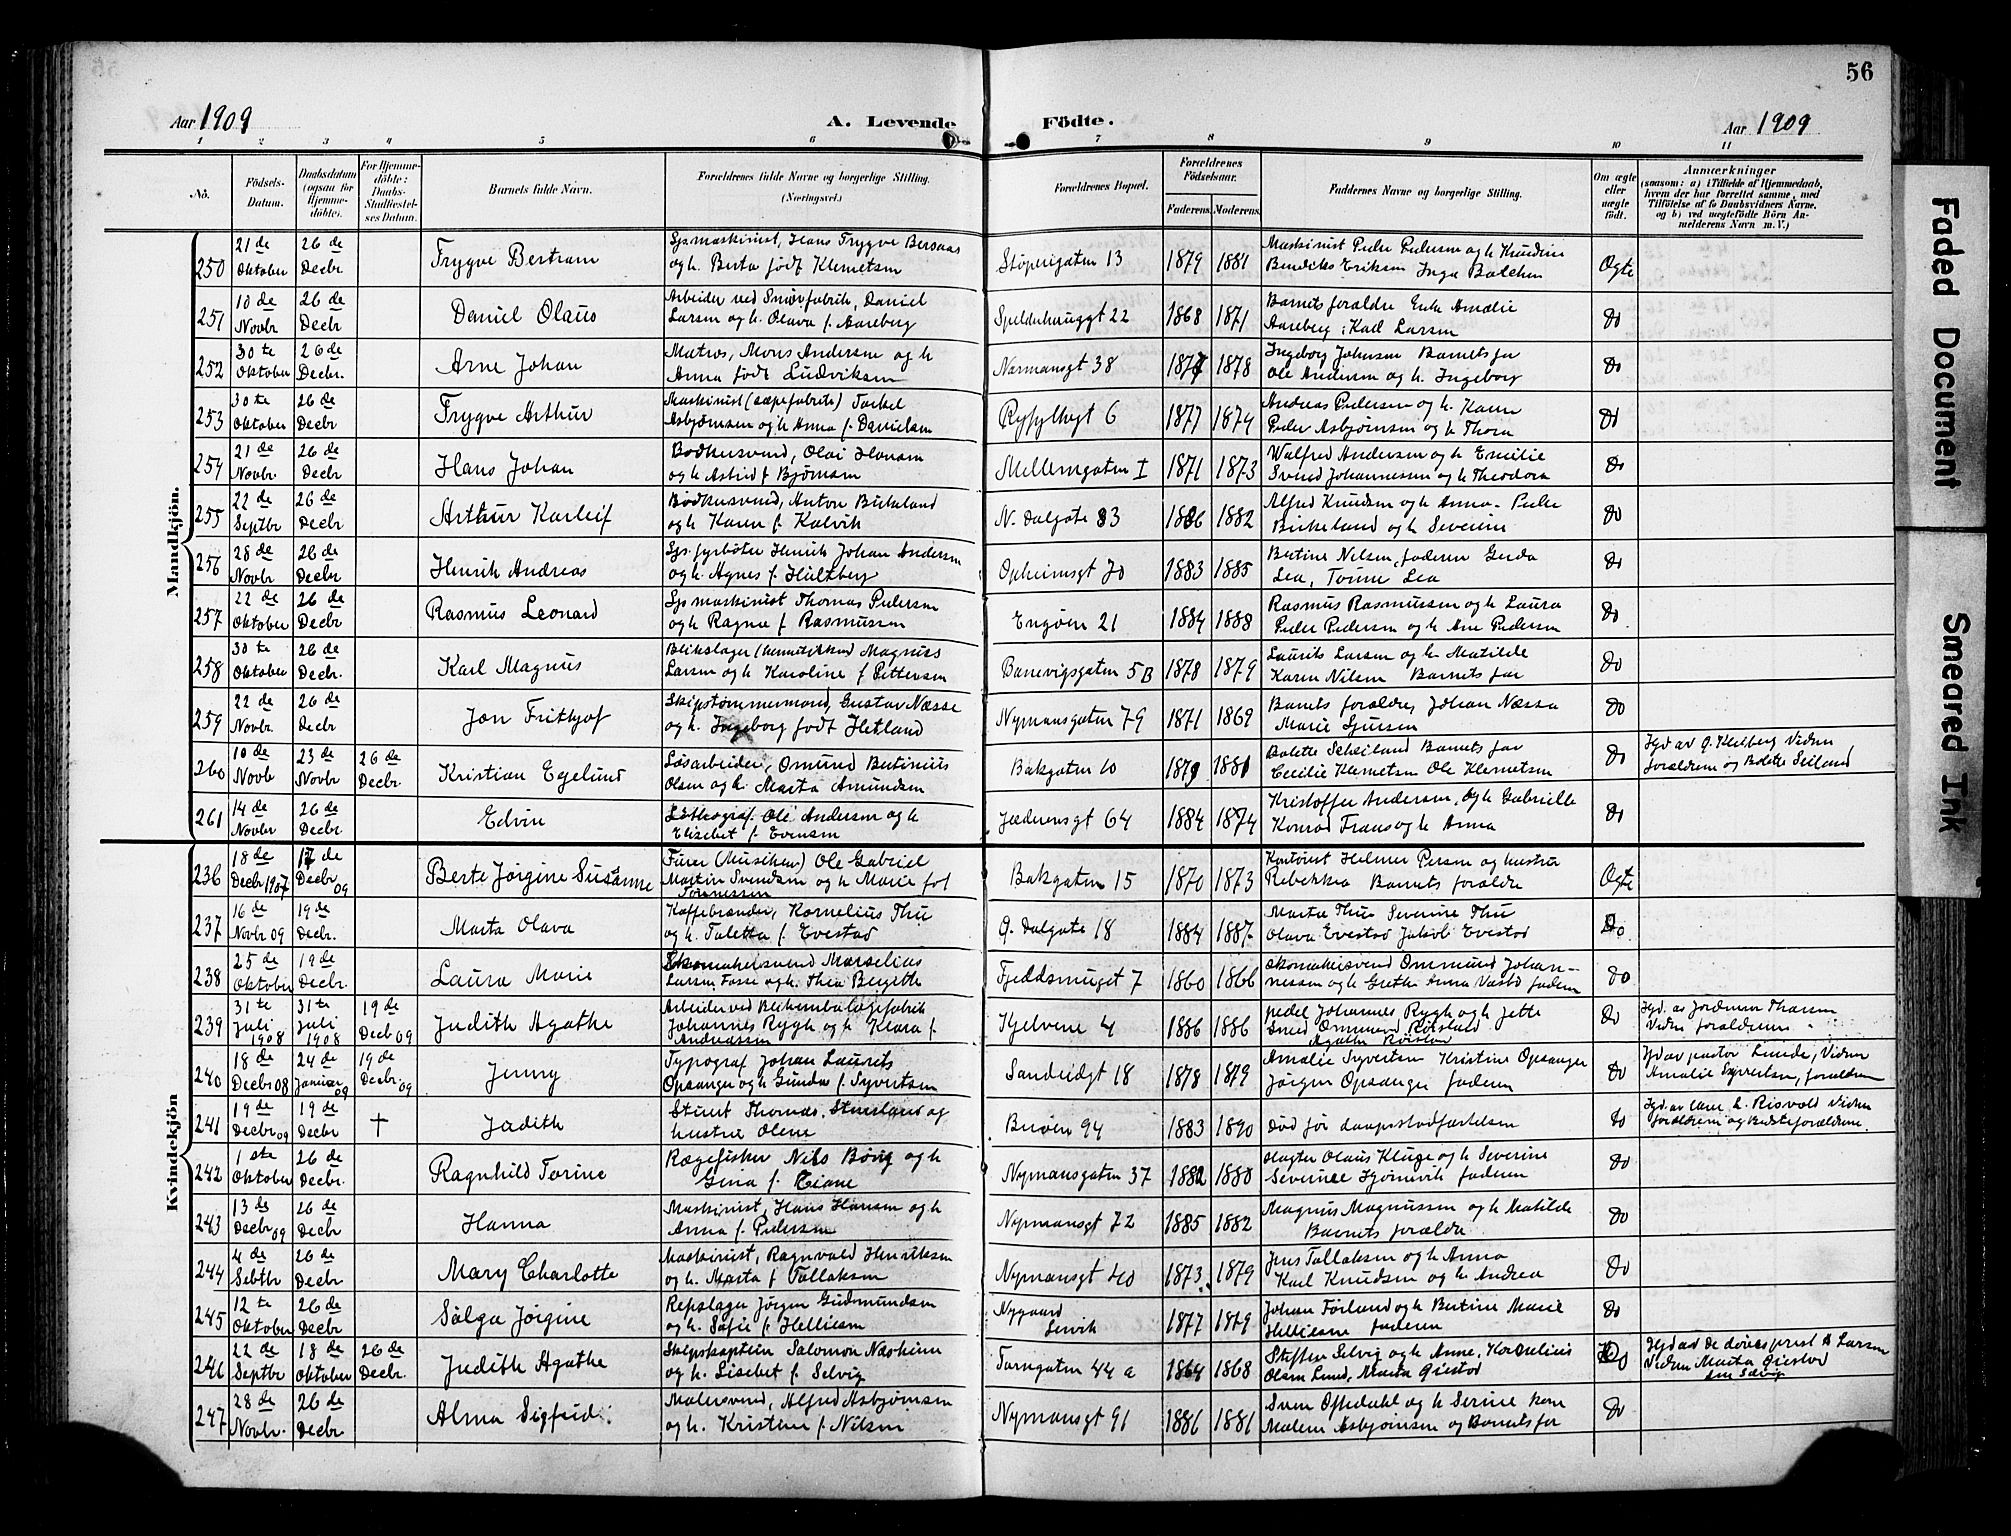 56
Aar 1909
A. Levende Födte.
Aar 1909
1 2 3 4 5 6 7 8 9 10 11
No.
Födsels-Datum.
Daabsdatum (ogsaa for Hjemmedöbte).
For Hjemmedöbte: Daabs-Stadfæstelses Datum.
Barnets fulde Navn.
Forældrenes fulde Navne og borgerlige Stilling. (Næringsvei.)
Forældrenes Bopæl.
Forældrenes Födselsaar.
Faderens. Moderens.
Faddernes Navne og borgerlige Stilling.
Om ægte eller uægte födt.
Anmærkninger
(saasom: a) i Tilfælde af Hjemmedaab, hvem der har forrettet samme, med Tilföielse af to Daabsvidners Navne, og b) ved uægtefödte Börn Anmelderens Navn m. V.)
Mandkjön.
250 21de Oktober 26de Decbr Trygve Bertram
Sys maskinist, Hans Trygve Bersaas
og h. Berta født Klemetsen
Støperigaten 13 1879 1881
Maskinist Peder Pedersen og h Knudine
Bendikte Eriksen Inga Balchen
Ogte
251 10de Novbr 26de Decbr Daniel Olaus
Arbeider ved Smørfabrik, Daniel
Larsen og h. Olava f. Aareberg
Speldehauggt 22 1868 1871
Barnets forældre Enke Amalie
Aareberg, Karl Larsen
Do
252 30te Oktober 26de Decbr. Arne Johan
Matros, Mons Andersen og h
Anna født Ludviksen
Normansgt 38 1877 1878
Ingeborg Johnsen Barnets far
Ole Andersen og h. Ingeborg
Do
253 30te Oktober 26de Decbr Trygve Arthur
Maskinist (sæpefabrik) Torkel
Asbjørnsen og h Anna f. Danielsen
Ryfylkegt 6 1877 1874
Andreas Pedersen og h. Karen
Peder Asbjørnsen og h Thora
Do
254 21de Novbr. 26de Decbr Hans Johan
Bødkersvend, Olai Hansen
og h Astrid f Bjørnsen
Mellemgaten I 1871 1873
Walfred Andersen og h Emilie
Svend Johannessen og h Theodora
Do
255 22de Septbr 26de Decbr Arthur Karleif
Bødkersvend, Anton Birkeland
og h Karen f. Kalvik
N. Dalgate 83 1886 1882
Alfred Knudsen og h Anna. Peder
Birkeland og h Severine
Do
256 28de Novbr 26de Decbr Henrik Andreas
Sys. fyrbøter Henrik Johan Andersen
og h. Agnes f. Hultberg
Opheimsgt 70 1883 1885
Bertine Nilsen, faderen Gerda
Lea, Tomine Lea
Do
257 22de Oktober 26de Decbr Rasmus Leonard
Sys maskinist Thomas Pedersen
og h Ragna f Rasmussen
Engøen 21 1884 1888
Rasmus Rasmussen og h Laura
Peder Pedersen og h Ane Pedersen
Do
258 30te Oktober 26de Decbr. Karl Magnus
Blikslager (hermetikken) Magnus
Larsen og h Karoline f Pettersen
Banevigsgaten 5B 1878 1879
Laurits Larsen og h Matilde
Karen Nilsen Barnets far
Do
259 22de Novbr. 26de Decbr Jon Fritjof
Skipstømmermand, Gustav Næsse
og h. Ingeborg født Hetland
Nymansgaten 79 1871 1869
Barnets forældre, Johan Næssa
Marie Sjursen
Do
260 10de Novbr 23de Novbr 26de Decbr. Kristian Egelund
Løsarbeider, Omund Bertinius
Olsen og h. Marta Amundsen
Bakgaten 10 1879 1881
Bolette Scheiland Barnets far
Cecilie Klemetsen Ole Klemetsen
Do
Hjd av G. Kielberg Vidner
forældrene og Bolette Seiland
261 14de Novbr 26de Decbr Edvin
Lithograf. Ole Andersen og h
Elisebet f. Evensen
Jæderensgt 64 1884 1874
Kristoffer Andersen, og h Gabrielle
Konrad Frans og h Anna
Do
Kvindekjön
236 18de Decbr 1907 17de Decbr 09 Berte Jørgine Susanne
Furer (Musiken) Ole Gabriel
Martin Svendsen og h Marie fol
Tønnessen
Bakgaten 15 1870 1873
Kontorist Helmer Persen og hustru
Rebekka Barnets forældre
Ogte
237 16de Novbr 09 19de Decbr. Marta Olava
Kaffebrænder, Kornelius Thu
og h. Taletta f. Evestad
Ø. Dalgate 18 1884 1887
Marta Thu Severine Thu
Olava Evestad Jakob Evestad
Do
238 25de Oktober 19de Decbr. Laura Marie
Skomakersvend Marselius
Larsen Fosse og h. Thea Birgitte
Fjeldsmuget 7 1860 1866
skomakersvend Ommund Johan-
nessen og h Grethe Anna Vasbø faderen
Do
239 31te Juli 1908 31te Juli 1908 19de Decbr 09 Judith Agathe
Arbeider ved Blikemballagefabrik
Johannes Rygh og h Klara f
Andreassen
Kjelvene 4 1886 1886
pedel Johannes Rygh og h Jette
Smed Ommund Roisland
Agathe Roisland
Do
Hjd. av Jordmor Thorsen
Vidner forældrene
240 18de Decbr 08 24de Januar 09 19de Decbr 09 Jenny
Typograf Johan Laurits
Opsanger og h Gunda f. Syvertsen
Sandeidgt 18 1878 1879
Amalie Syvertsen Kristine Opsanger
Jørgen Opsanger faderen
Do
Hjd av pastor Lunde, Vidner
Amalie Syvertsen, forældrene
241 19de Decbr 09 19de Decbr † Judith
Stuert Thomas. Stensland og
hustru Olene
Buøen 94 1883 1890
død før daapsstadfæstelsen
Do
Hjd. av lærer h. Risvold Vidner
forældrene og Bedsteforældrene.
242 1ste Oktober 26de Decbr. Ragnhild Torine
Rægefisker Nils Børg og h
Gina f. Tiane
Nymansgaten 37 1882 1880
slagter Olaus Kluge og h Severine
Severine Hjørnevik faderen
Do
243 13de Decbr 09 26de Decbr Hanna
Maskinist, Hans Hansen og h
Anna f. Pedersen
Nymansgt 72 1885 1882
Magnus Magnussen og h Matilde
Barnets forældre
Do
244 4de Sebtbr 26de Decbr Mary Charlotte
Maskinist, Ragnvald Henriksen
og h. Marta f Tallaksen
Nymansgt 40 1873 1879
Jens Tallaksen og h Anna
Karl Knudsen og h Andrea
Do
245 12te Oktober 26de Decbr Solga Jørgine
Repslager Jørgen Gudmundsen
og h. Sofie f. Helliesen
Nygaard
Lervik
1877 1879
Johan Førland og h Bertine Marie
Helliesen faderen
Do
246 22de Septbr 18de Oktober 26de Decbr. Judith Agathe
Skipskaptein Salomon Næsheim
og h. Lisebet f. Selvig
Tarngaten 44 a 1864 1868
Steffen Selvig og h Anne, Kornelius
Olsen Lund, Marta Øiestad
Do
Hjd av De døves prest A Larsen
Vidner Marta Øiestad
Ane Selvig
247 28de Novbr. 26de Decbr. Alma Sigfrid.
Malersvend, Alfred Asbjørnsen
og h. Kristine f. Nilsen
Nymansgt 91 1886 1881
Sven Oftedahl og h Serine
Malene Asbjørnsen og Barnets far
Do
Faded Document
Smeared Ink